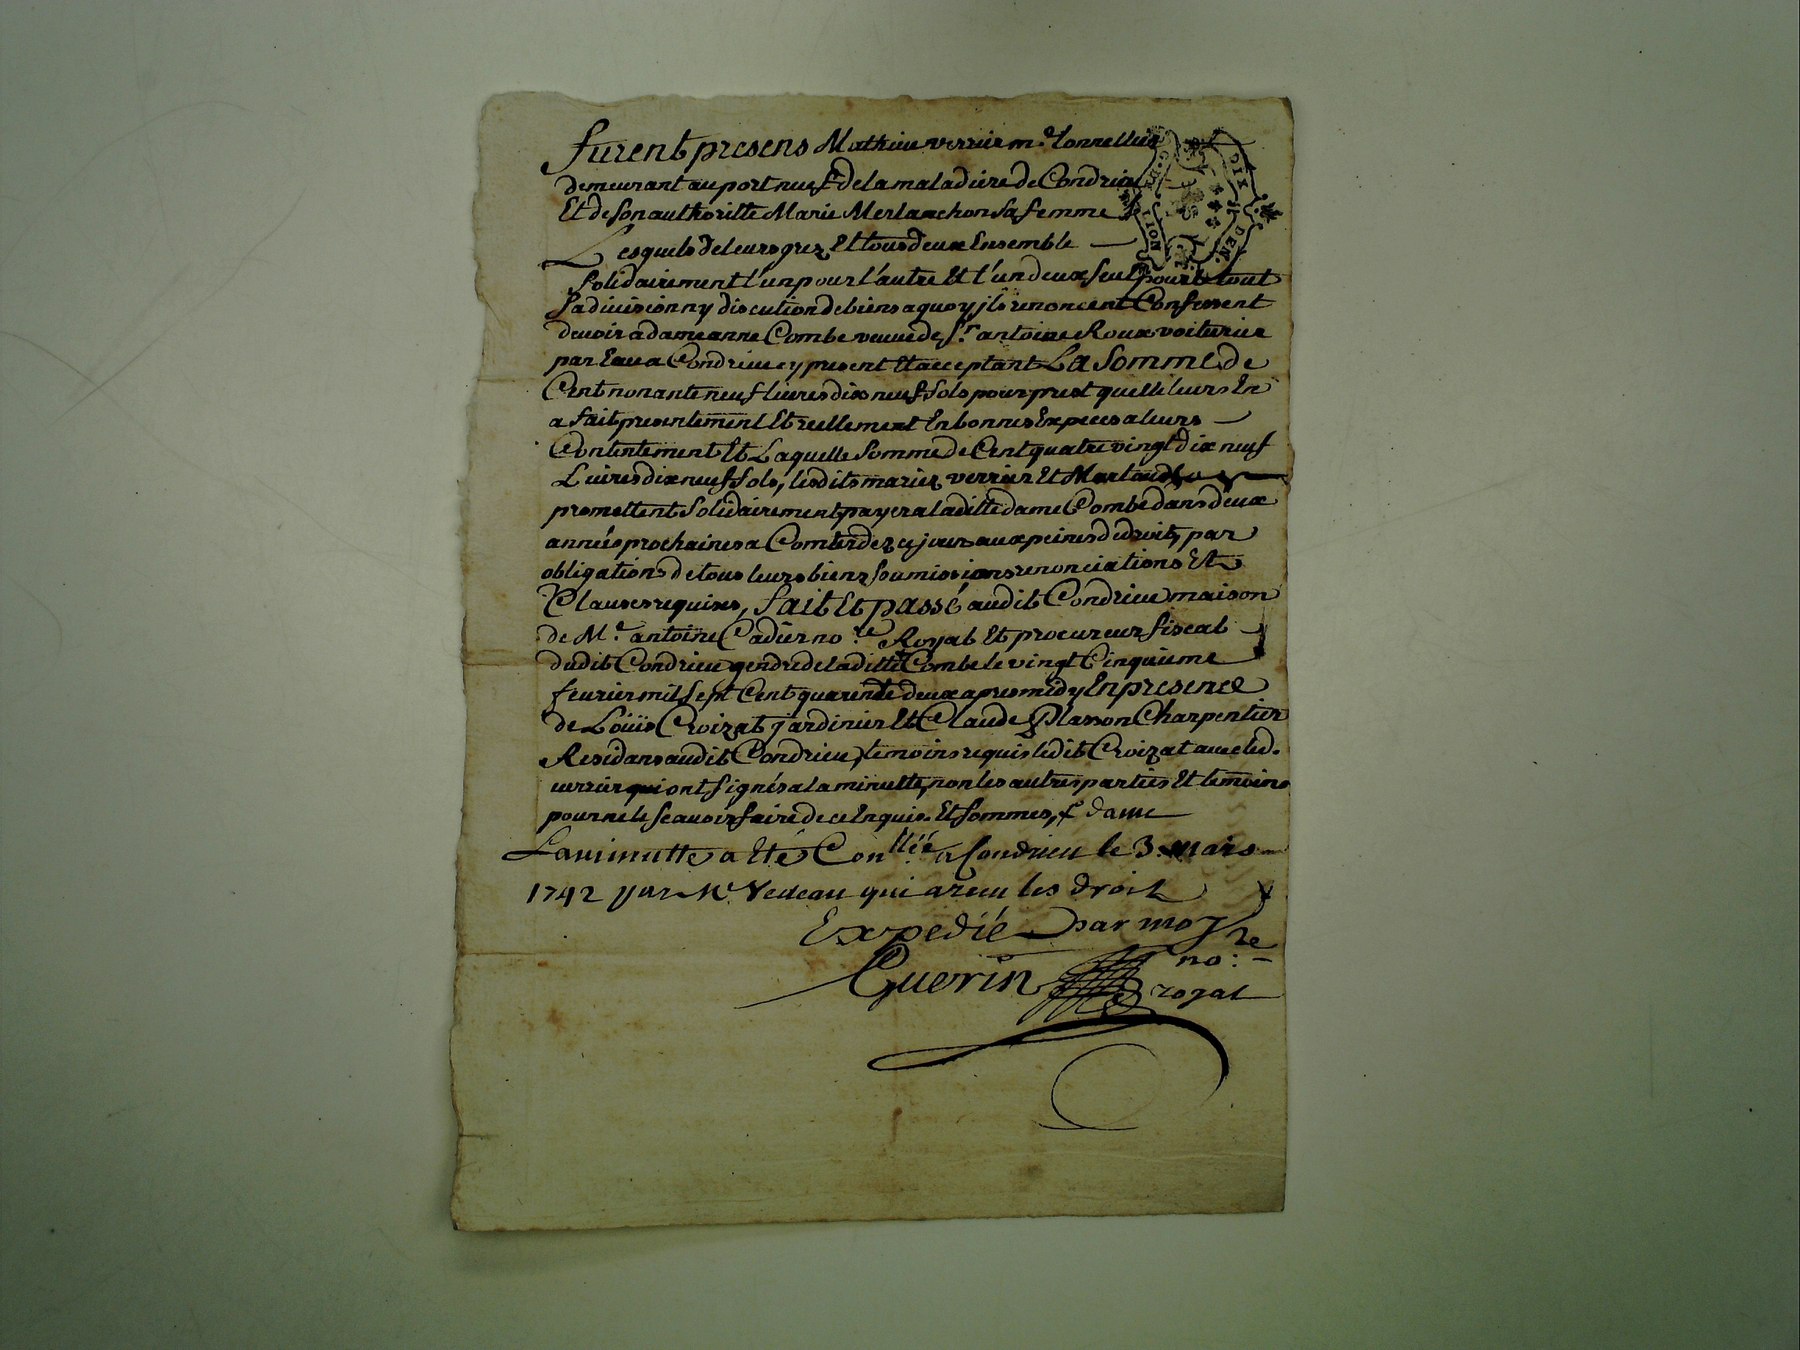 furent presens Mathieu verrier m.e tonnellier
demeurant au port neuf de la maladiere de Condrieu
Et de son authoritte Marie Merlanchon sa femme
Lesquels de leurs grez Et tous deux Ensemble
solidairement l'un pour l'autre Et l'un deux seul pour le tout
sa division ny discution de biens a quoy jls renoncent Confessent
devoir a dame anne Combe veuve de Sr. antoine Roux voiturier
par Eau a Condrieu cy present Et acceptant La Somme de
Cent nonante neuf livres dix neuf sols pour prest quelle leurs En
a fait presentement Et reellement En bonnes Expeces a leurs
Contentement Et Laquelle Somme de Cent quatre vingt dix neuf
Livres dix neuf sols, lesdits mariez verrier Et
promettent solidairement payer a laditte dame Combe dans deux
années prochaines a Compter dez ce jour aux peines de droit, par
obligations de tous leurs biens soumissions renonciations Et
Clauses requises, fait Et passé audit Condrieu maison
de Me. antoine Cadier no.re Royal Et procureur fiscal
dudit Condrieu gendre de laditte Combe le vingt Cinquieme
fevrier mil sept Cent quarente deux apres midy En presence
de Loüis Croizat jardinier Et Claude Plasson Charpentier
Residans audit Condrieu, temoins requis ledit Croizat avec led.
verrier qui ont signés a la minutte, non les autres parties Et temoins
pour ne le scavoir faire de ce Enquis. Et sommes,
La minutte a Eté Con.llée a Condrieu le 3. mars
1742 par Me. Vedeau qui a receu les droit
Expedié par moy
Guerin no:re
royal